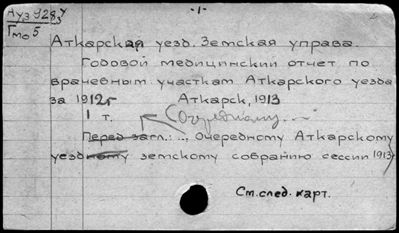 -1-
Ауз 928 у
Гмо 5 3
Аткарская уезд. Земская управа.
Годовой медицинский отчет по
врачебным участкам Аткарского уезда
за 1912г Аткарск, 1913
1 т. (Очередному...
Перед загл.: .., Очередному Аткарскому
уездному земскому собранию сессии 1913
См. след. карт.